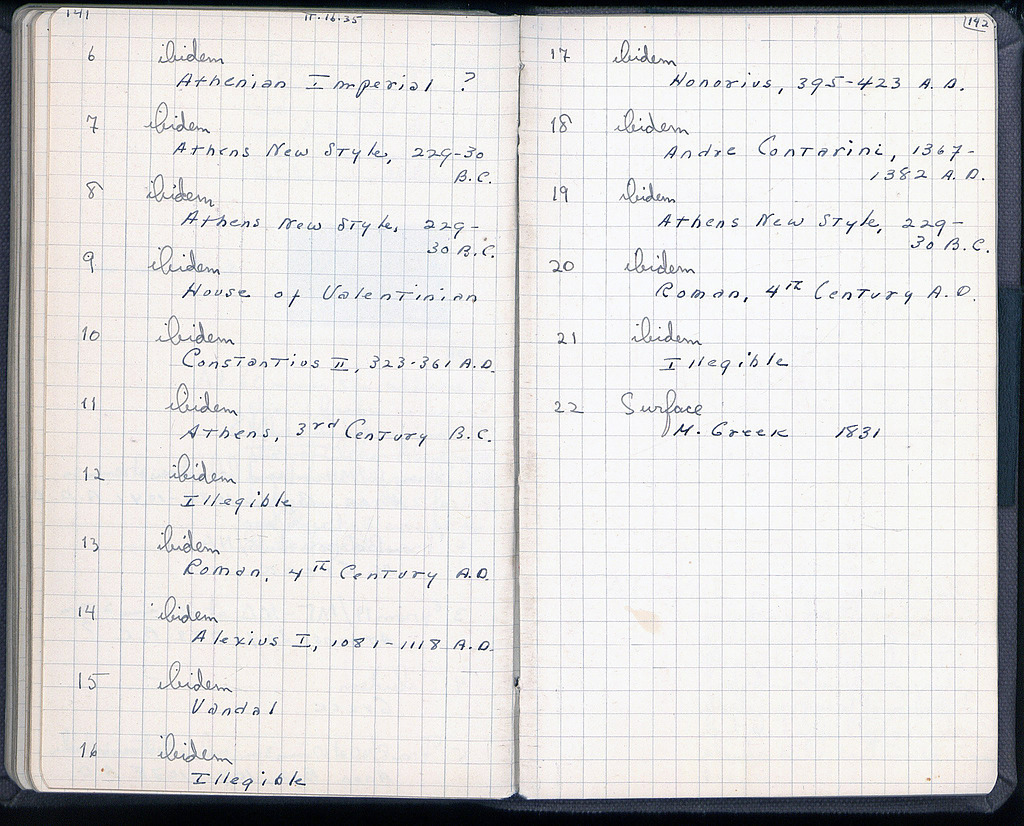 141
II.16.35
6 ibidem
Athenian Imperial ?
7 ibidem
Athens New Style, 229-30
B.C.
8 ibidem
Athens New Style, 229-
30 B.C.
9 ibidem
House of Valentinian
10 ibidem
Constantius II, 323-361 A.D.
11 ibidem
Athens, 3rd Century B.C.
12 ibidem
Illegible
13 ibidem
Roman, 4th Century A.D.
14 ibidem
Alexius I, 1081-1118 A.D.
15 ibidem
Vandal
16 ibidem
Illegible
142
17 ibidem
Honorius, 395-423 A.D.
18 ibidem
Andre Contarini, 1367-
1382 A.D.
19 ibidem
Athens New Style, 229-
30 B.C.
20 ibidem
Roman, 4th Century A.D.
21 ibidem
Illegible
22 Surface
M. Greek 1831